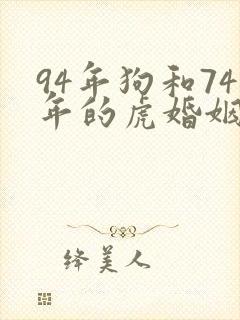 94年狗和74
年的虎婚姻
绛美人